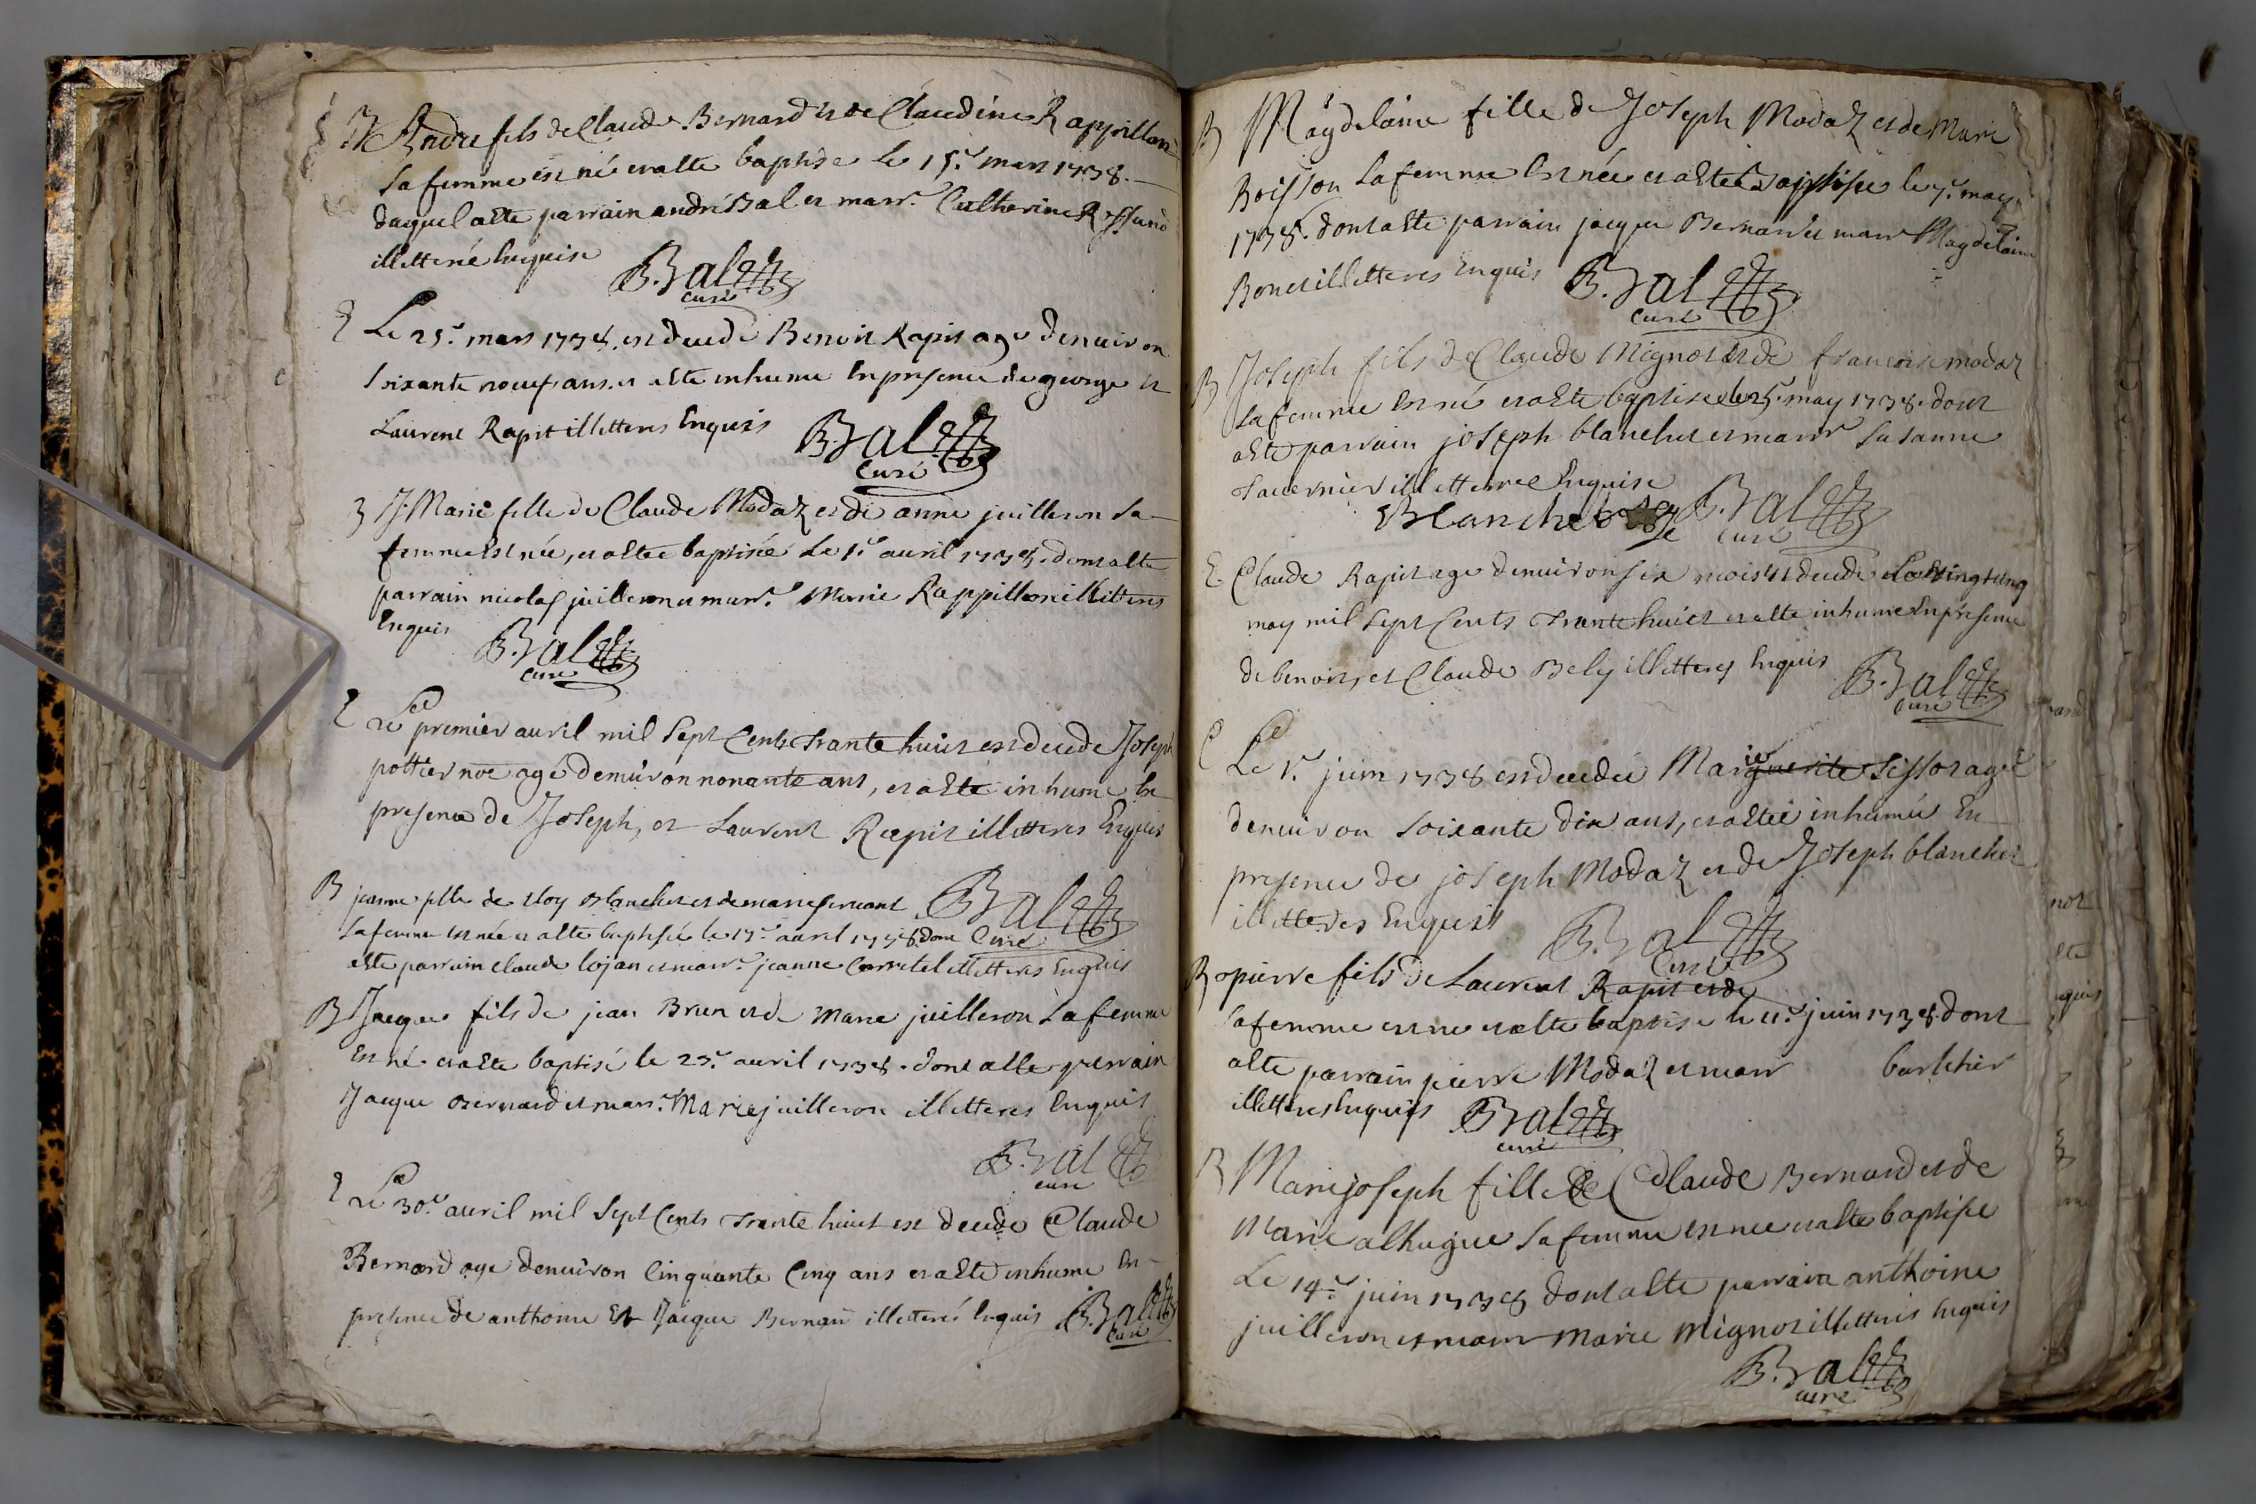 B Andre fils de Claude Bernard et de Claudine Rappillon
sa femme est né et a esté baptisé le 15.e mars 1738.
duquel a este parrain andré Bal et marr.e Catherine
illetteré Enquise
B. Bal
curé
E Le 25.e mars 1738. est decedé Benoit Rapit agé denviron
soixante neuf ans. et a esté inhumé En presence de george et
Laurent Rapit illetteres Enquis
B. Bal
Curé
B J. Marie fille de Claude Modaz et de anne juilleron sa
femme Est née, et a esté baptisée Le 1.e avril 1738. dont a esté
parrain nicolas juilleron et marr.e Marie Rappillon illitteres
Enquis
B. Bal
Curé
E Le premier avril mil sept Cents Trante huict est decede Joseph
pottier noe agé denviron nonante ans, et a esté inhume En
presence de Joseph, et Laurent Rapit illetteres Enquis
B. Bal
Curé
B jeanne fille de Eloy Blanchet et de marie servant
sa femme est née et a esté baptisée le 17.e avril 1738. dont
a este parrain Claude lojan et marr.e jeanne illetteres Enquis
B Jacque fils de jean Brun et de marie juilleron sa femme
Est né et a este baptisé le 23.e avril 1738. dont a este parrain
Jacque Bernard et marr.e Marie juilleron illetteres Enquis
B. Bal
curé
E Le 30.e avril mil sept Cents Trente huict est decede Claude
Bernard age denviron Cinquante Cinq ans et a esté inhume En
presence de anthoine Et Jacque Bernard illetterés Enquis
B. Bal
Curé
B Magdelaine fille de Joseph Modaz et de Marie
Boisson sa femme Est née et a este baptisee le 7.e may
1738. dont a esté parrain jacque Bernard et marr Magdelaine
Bonet illetteres Enquis
B. Bal
Curé
B Joseph fils de Claude Mignot et de francoise modaz
sa femme Est né et a este baptise le 25.e may 1738. dont
a este parrain joseph blanchet et marr.e Susanne
Tavernier illetterée Enquise
Blanchet
B. Bal
curé
E Claude Rapit age denviron six mois est decede Le vingt
may mil sept Cents Trante huict et a esté inhume En presence
de benoit, et Claude Bely illetteres Enquis
B. Bal
Curé
E Le 1.e juin 1738 est decedée Marguerite ie Sissoz agée
denviron soixante dix ans, et a estée inhumée En
presence de joseph Modaz et de Joseph blanchet
illetteres Enquis
B. Bal
Curé
B pierre fils de Laurent Rapit et de
sa femme est ne et a este baptise le 11.e juin 1738. dont
a este parrain pierre Modaz et marr
illetteres Enquis
B. Bal
curé
B Marie joseph fille de Claude Bernard et de
Marie alhugue sa femme est nee et a este baptisee
Le 14.e juin 1738 dont a este parrain anthoine
juilleron et marr marie Mignot illetteris Enquis
B. Bal
curé